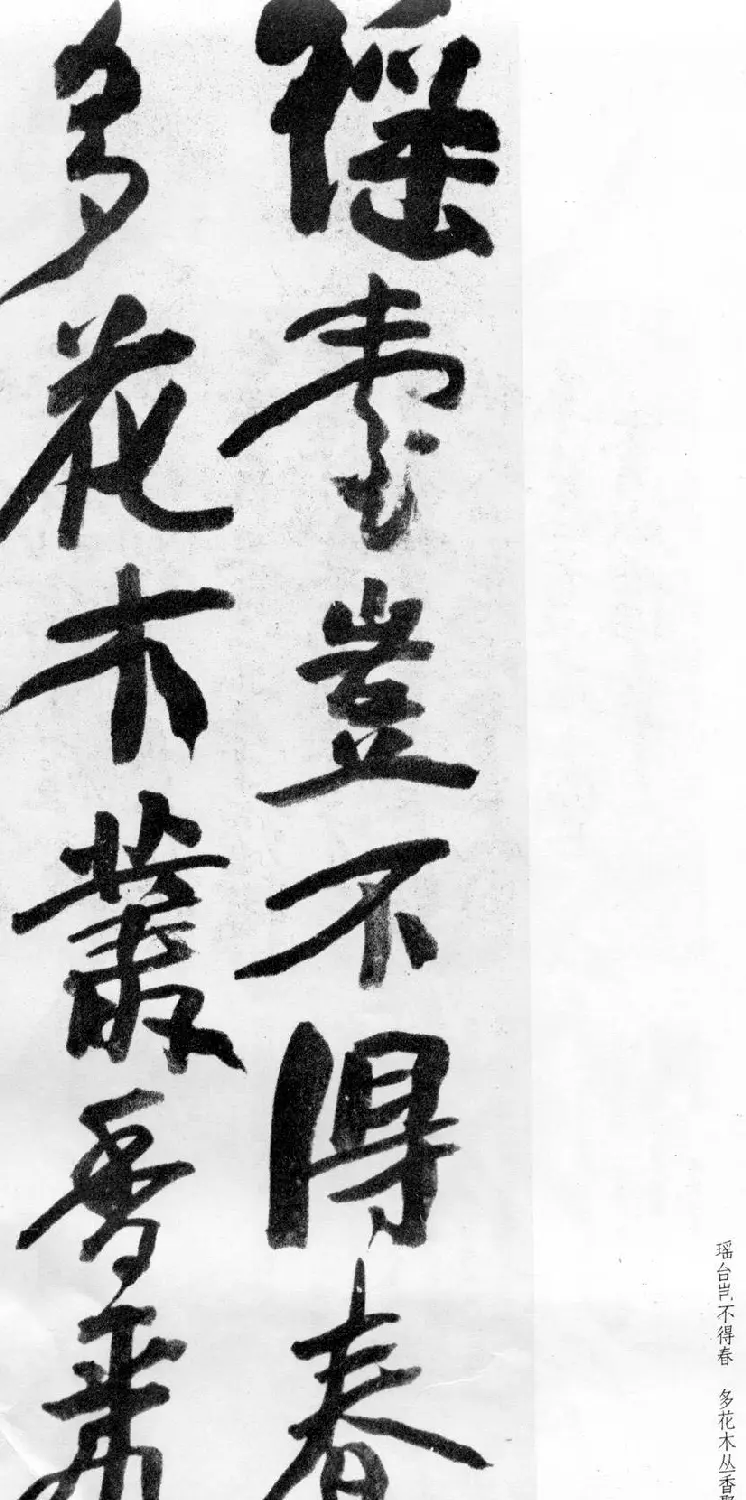 瑶台岂不得春 多花木丛香
瑤臺豈不得春
多花木叢香